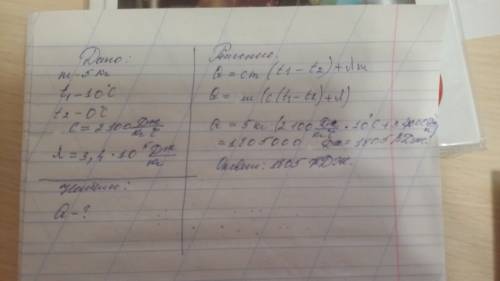 Дано:
m-5 кг
t1-10°C
t2-0°C
C=2100 Дж/кг°C
λ=3,4·10⁵ Дж/кг
Найти:
Q-?
Решение:
Q=cm(t1-t2)+λm
Q=m(c(t1-t2)+λ)
Q=5кг(2100 Дж/кг°C·10°C+
=1805000 Дж=1805кДж.
Ответ: 1805 кДж.